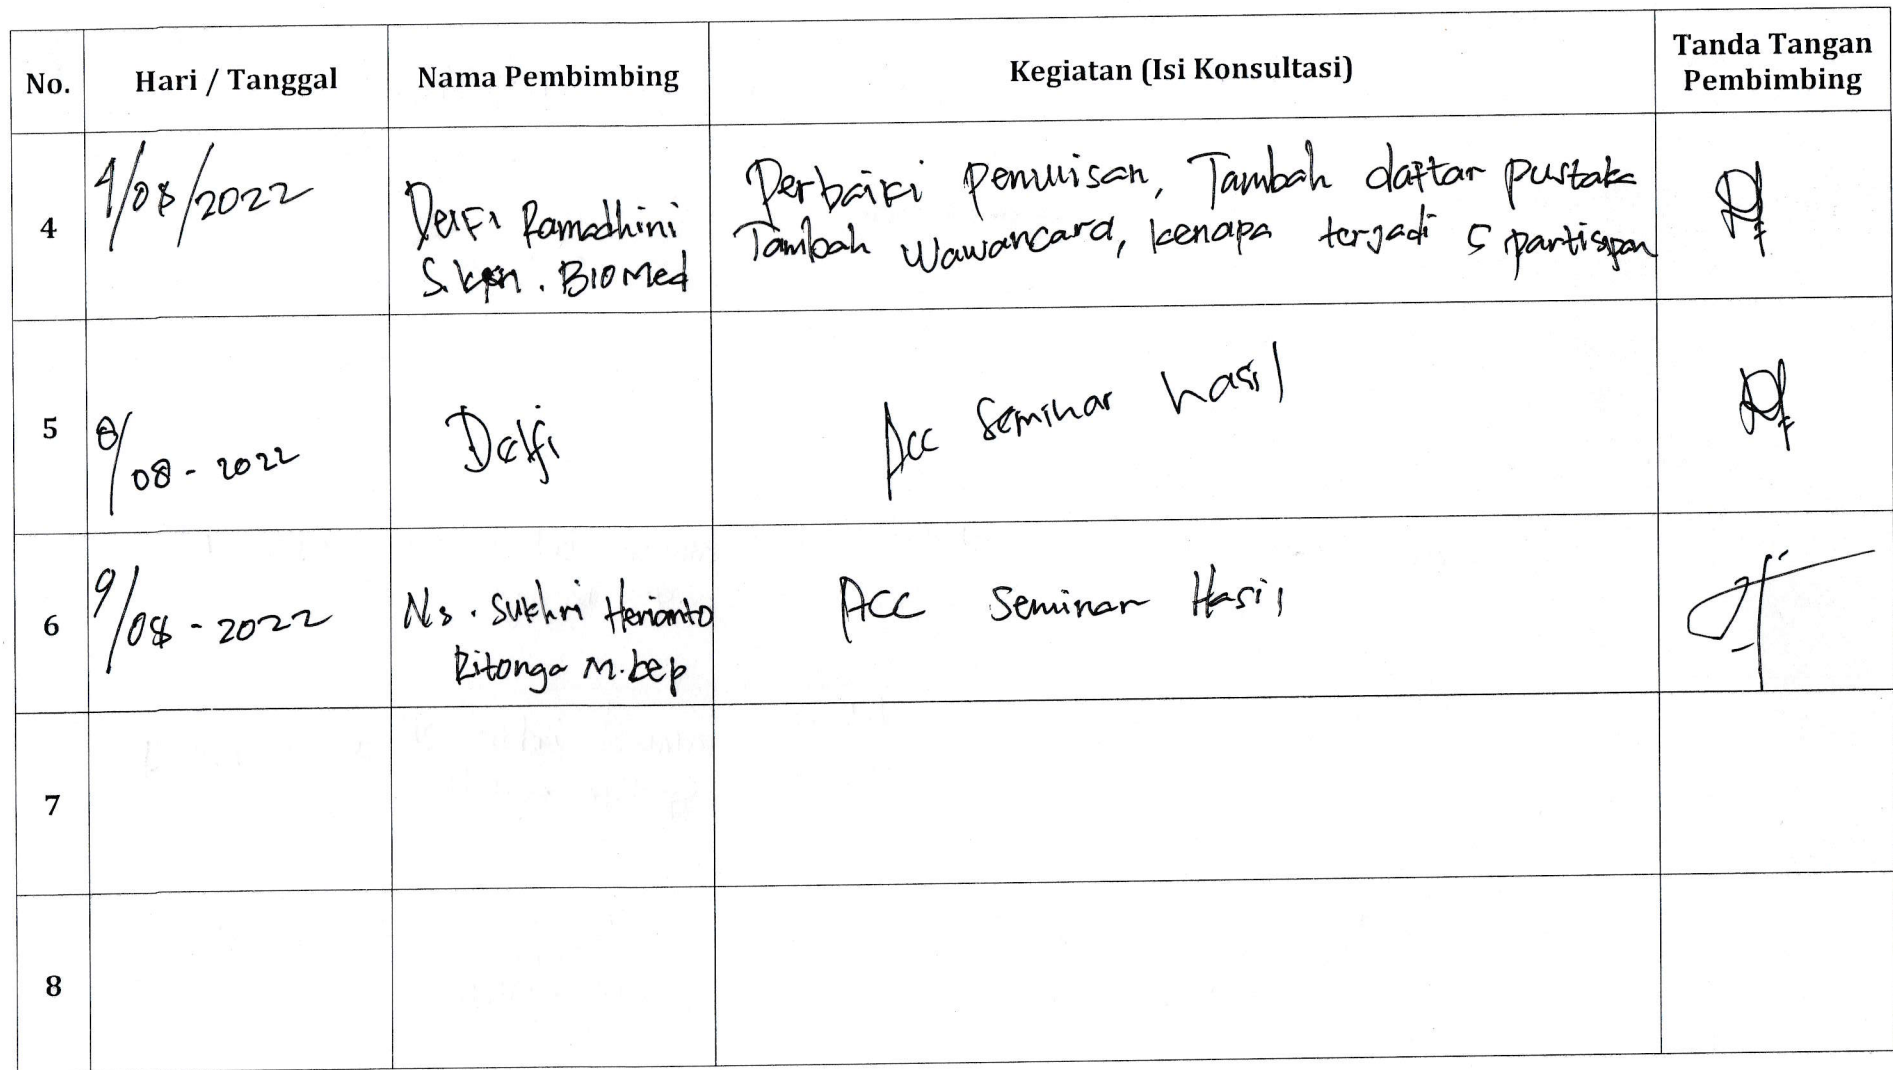 No. Hari / Tanggal Nama Pembimbing Kegiatan (Isi Konsultasi) Tanda Tangan
Pembimbing
4 4/08/2022 Delfi Ramadhini Perbaiki penulisan, Tambah daftar pustaka
S.kpn. BIOMed Tambah Wawancara, kenapa terjadi 5 partisipan
5 8/08-2022 Delfi Acc Seminar hasil
6 9/08-2022 Ns. Sukhri Herianto ACC Seminar Hasil
Ritonga M.kep
7
8